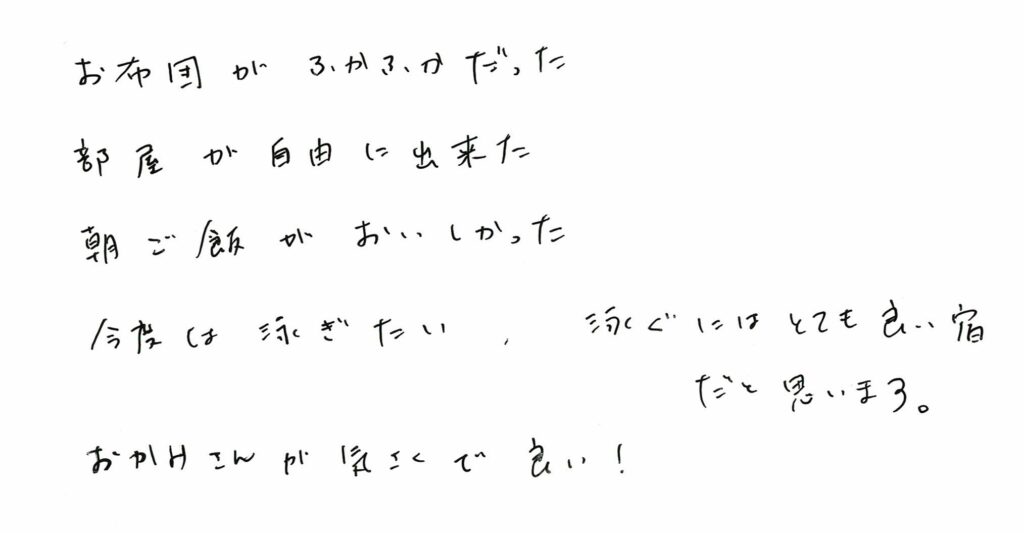 お布団がふかふかだった
部屋が自由に出来た
朝ご飯がおいしかった
今度は泳ぎたい、泳ぐにはとても良い宿
だと思います。
おかみさんが気さくで良い!